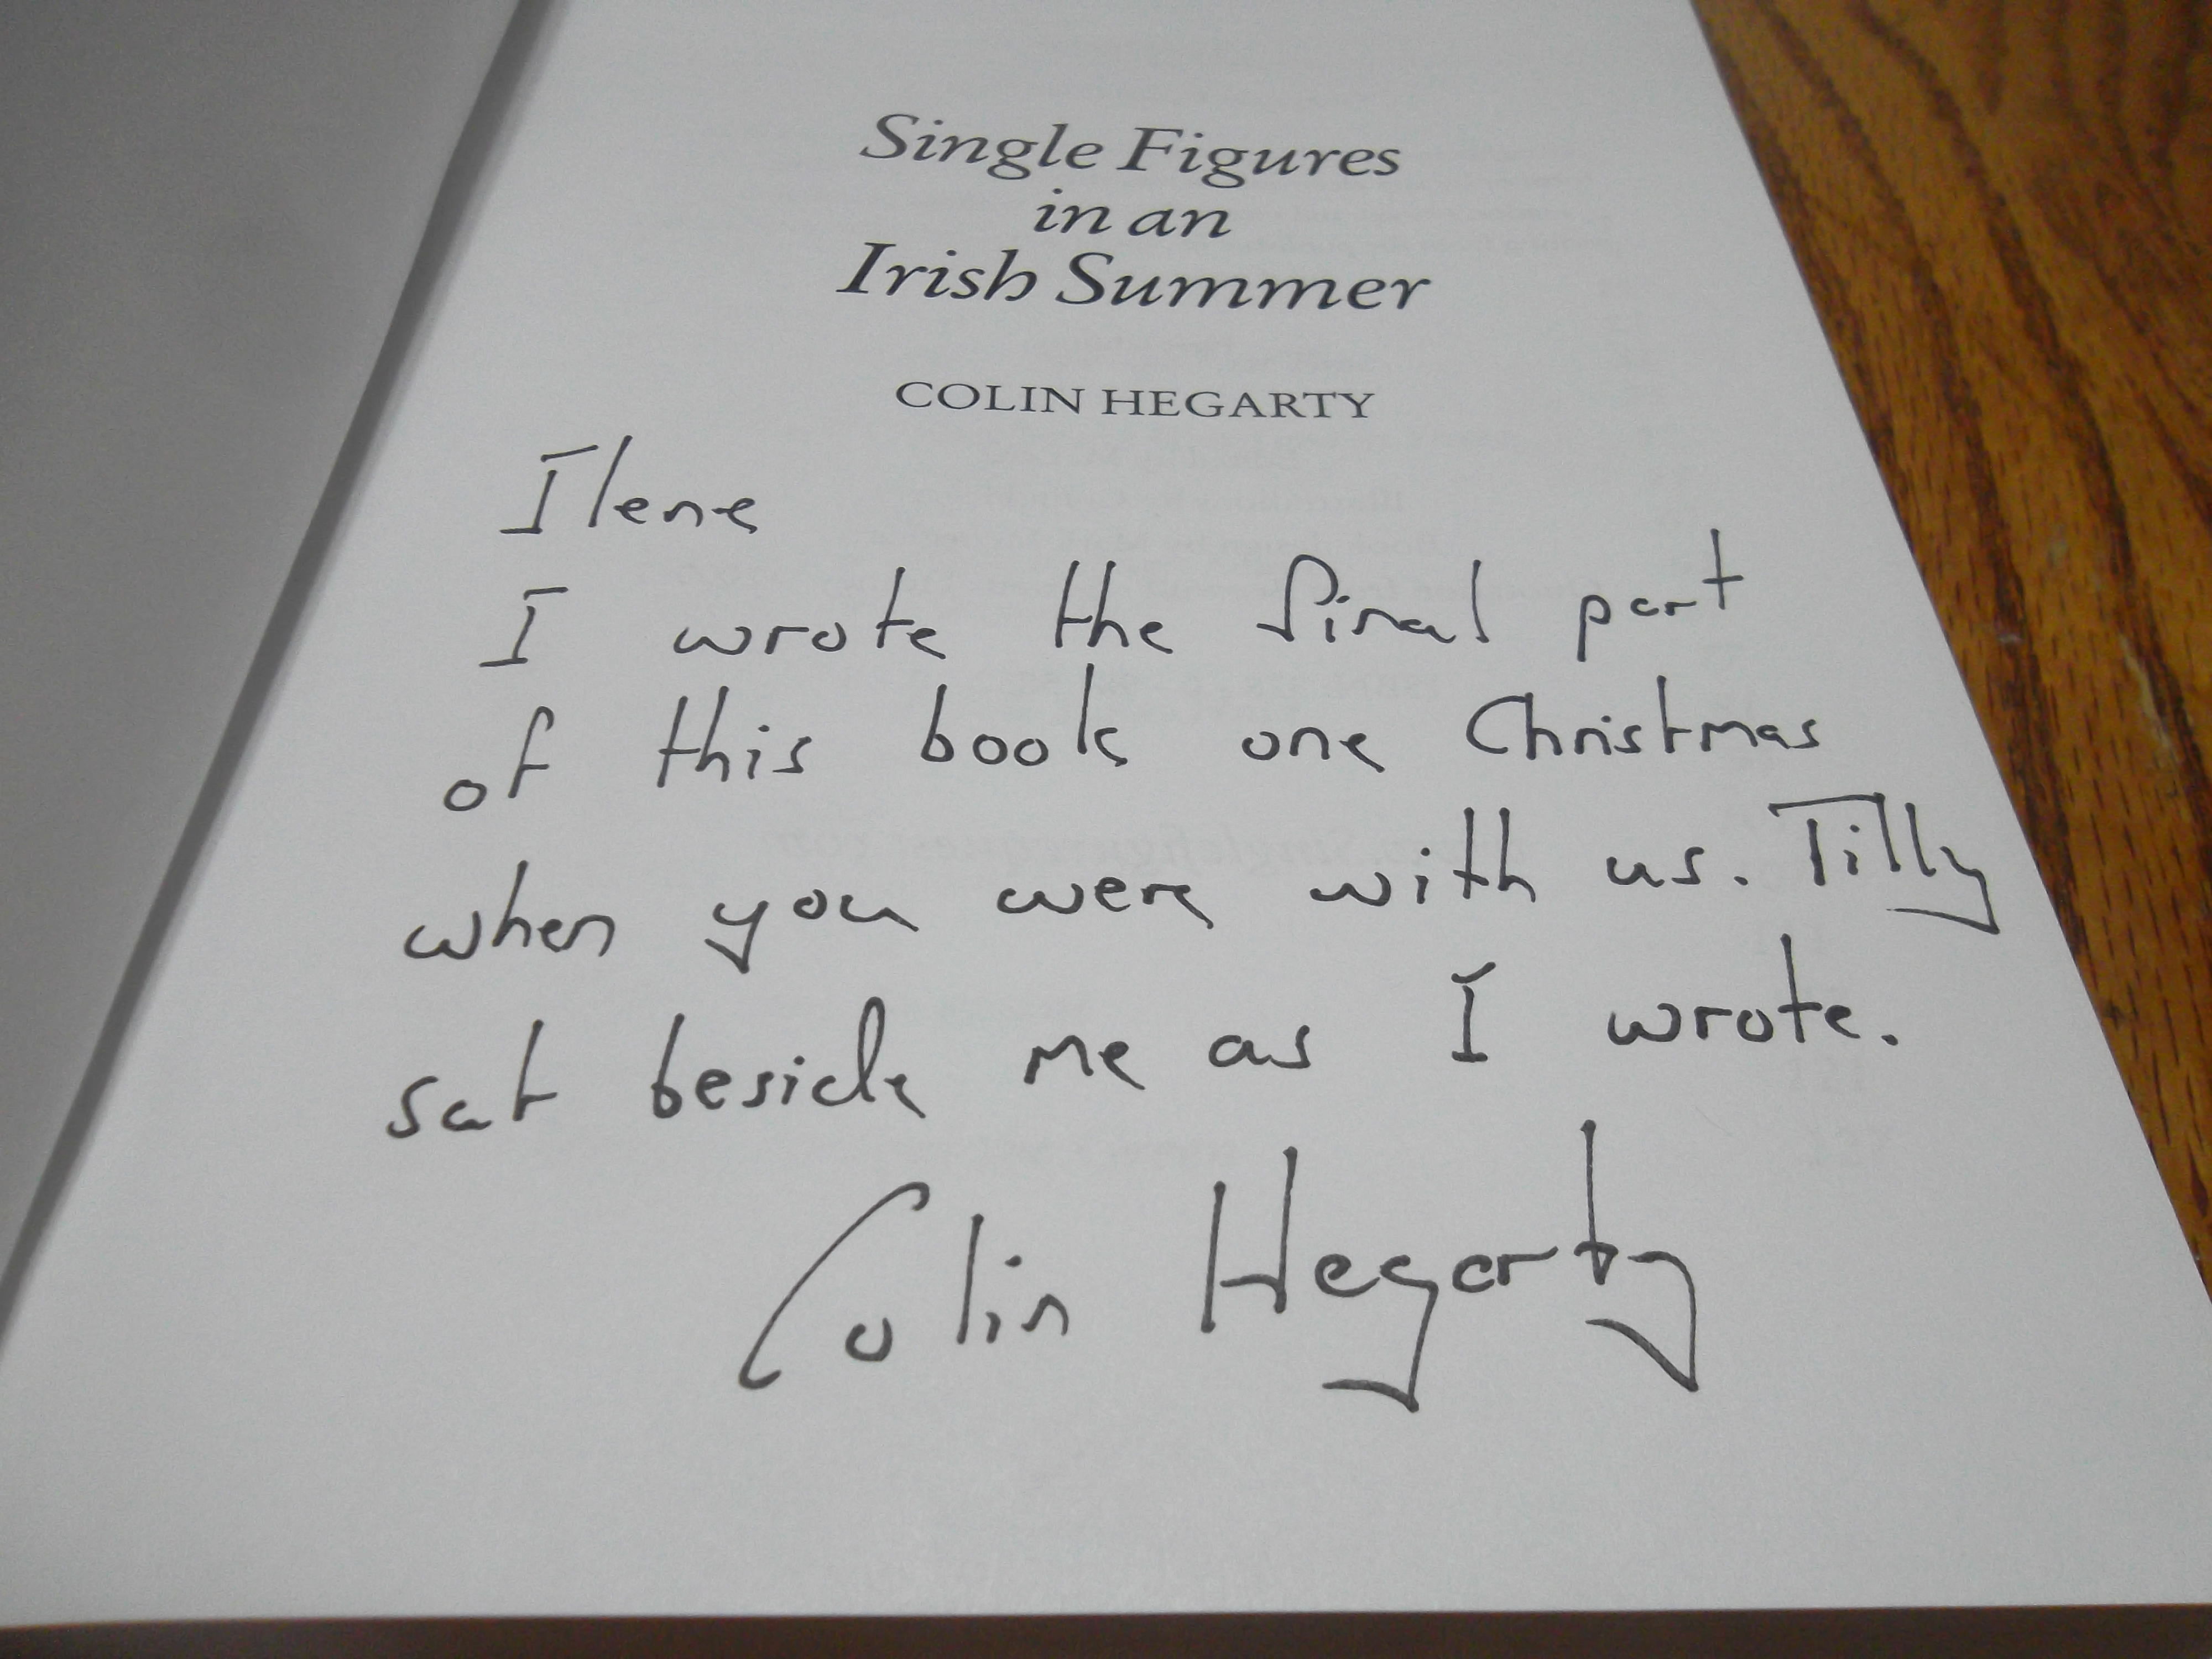 Single Figures
in an
Irish Summer
COLIN HEGARTY
Ilene
I wrote the final part
of this book one Christmas
when you were with us. Tilly
sat beside me as I wrote.
Colin Hegarty